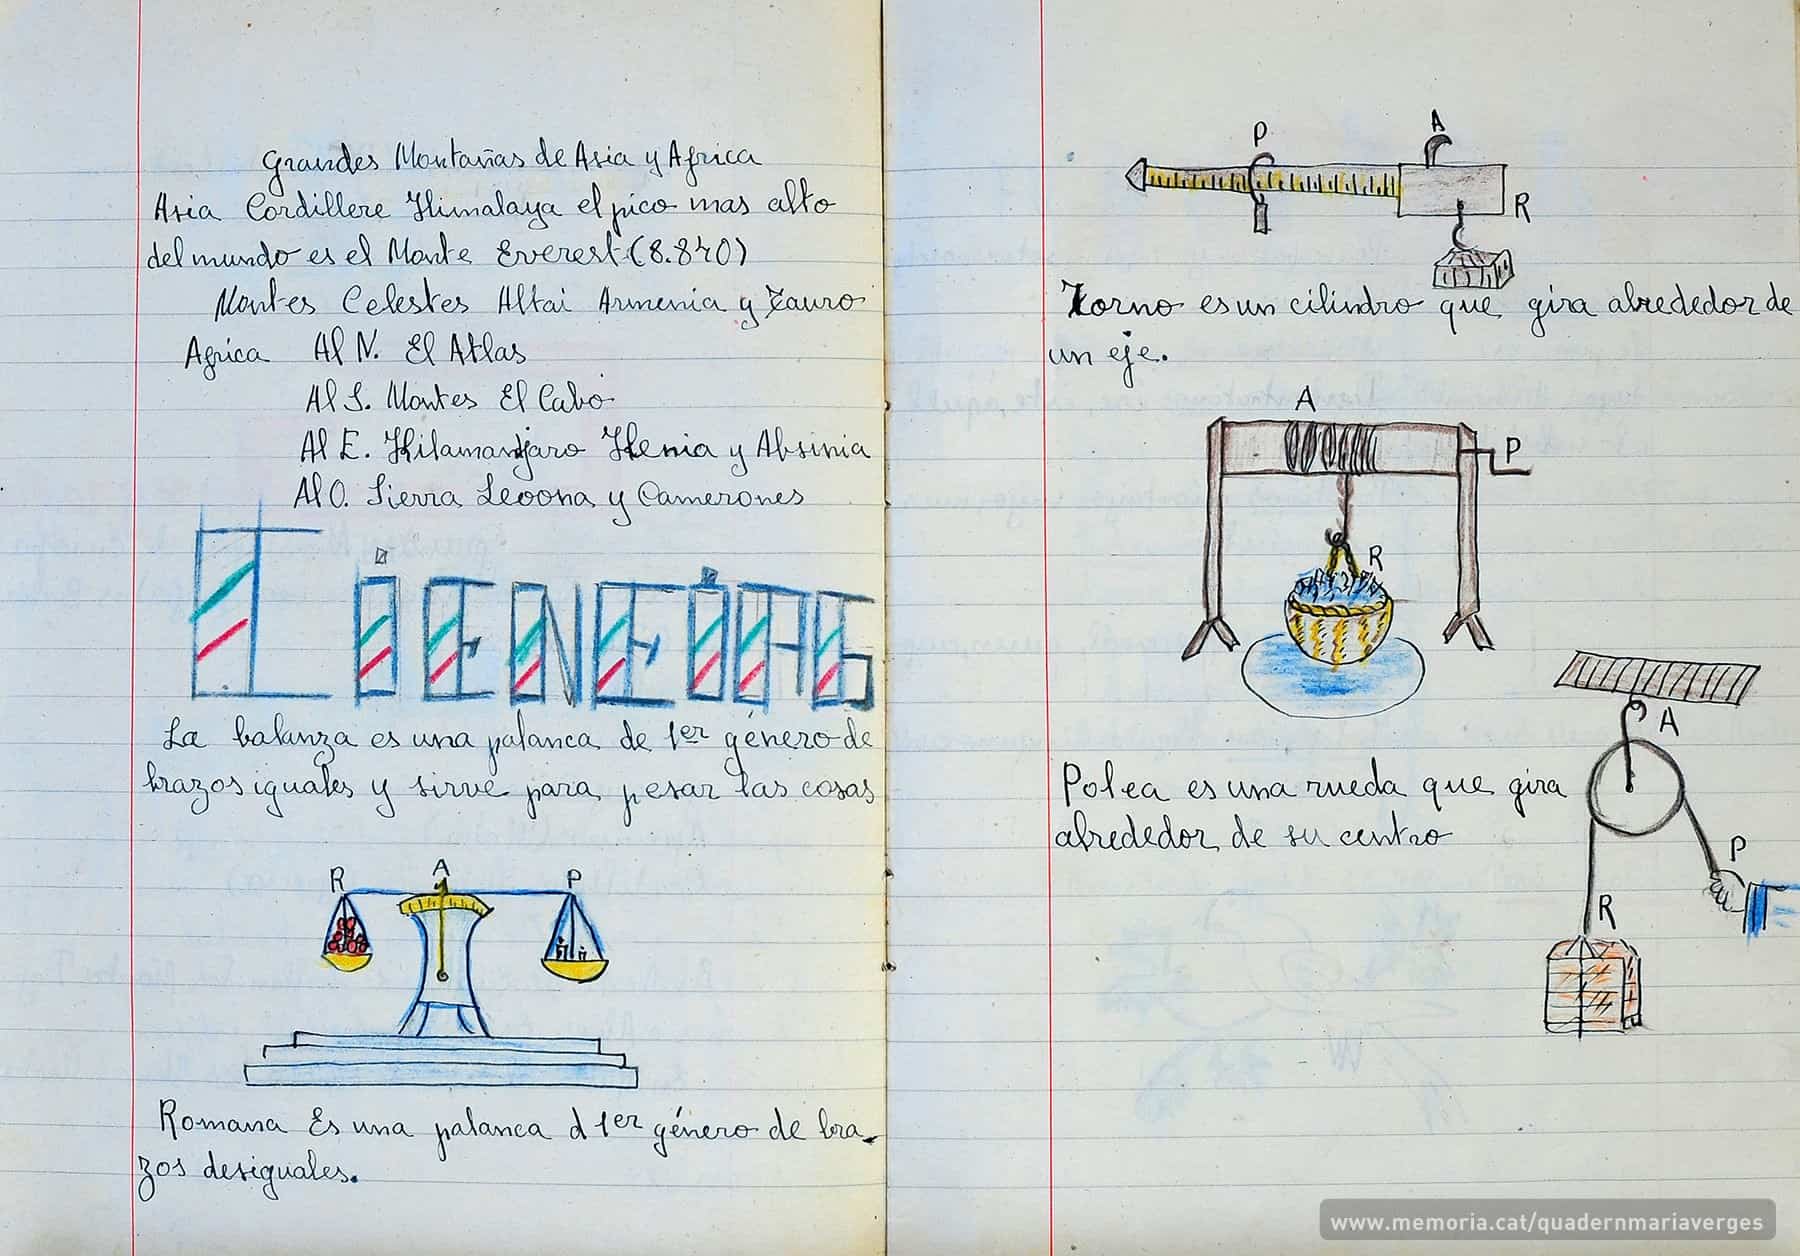 Grandes Montañas de Asia y Africa
Asia Cordillere Himalaya el pico mas alto
del mundo es el Monte Everest (8.840)
Montes Celestes Altai Armenia y Tauro
Africa Al N. El Atlas
Al S. Montes El Cabo
Al E. Kilamanjaro Kenia y Absinia
Al O. Sierra Leoona y Camerones
CiENEiAS
La balanza es una palanca de 1er género de
brazos iguales y sirve para pesar las cosas
R A P
Romana Es una palanca d 1er género de bra-
zos desiguales.
P A
R
Torno es un cilindro que gira abrededor de
un eje.
A
P
R
A
Polea es una rueda que gira
abrededor de su centro
P
R
www.memoria.cat/quadernmariaverges